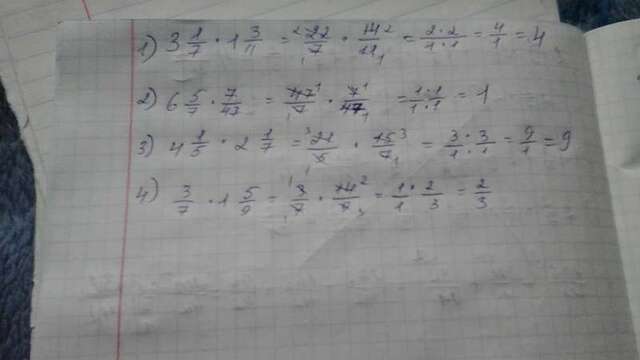 1) 3 1/7 · 1 3/11 = 22/7 · 14/11 = 2·2/1·1 = 4/1 = 4
2) 6 5/7 · 7/47 = 47/7 · 7/47 = 1·1/1·1 = 1
3) 4 1/5 · 2 1/7 = 21/5 · 15/7 = 3·3/1·1 = 9/1 = 9
4) 3/7 · 1 5/9 = 3/7 · 14/9 = 1·2/1·3 = 2/3